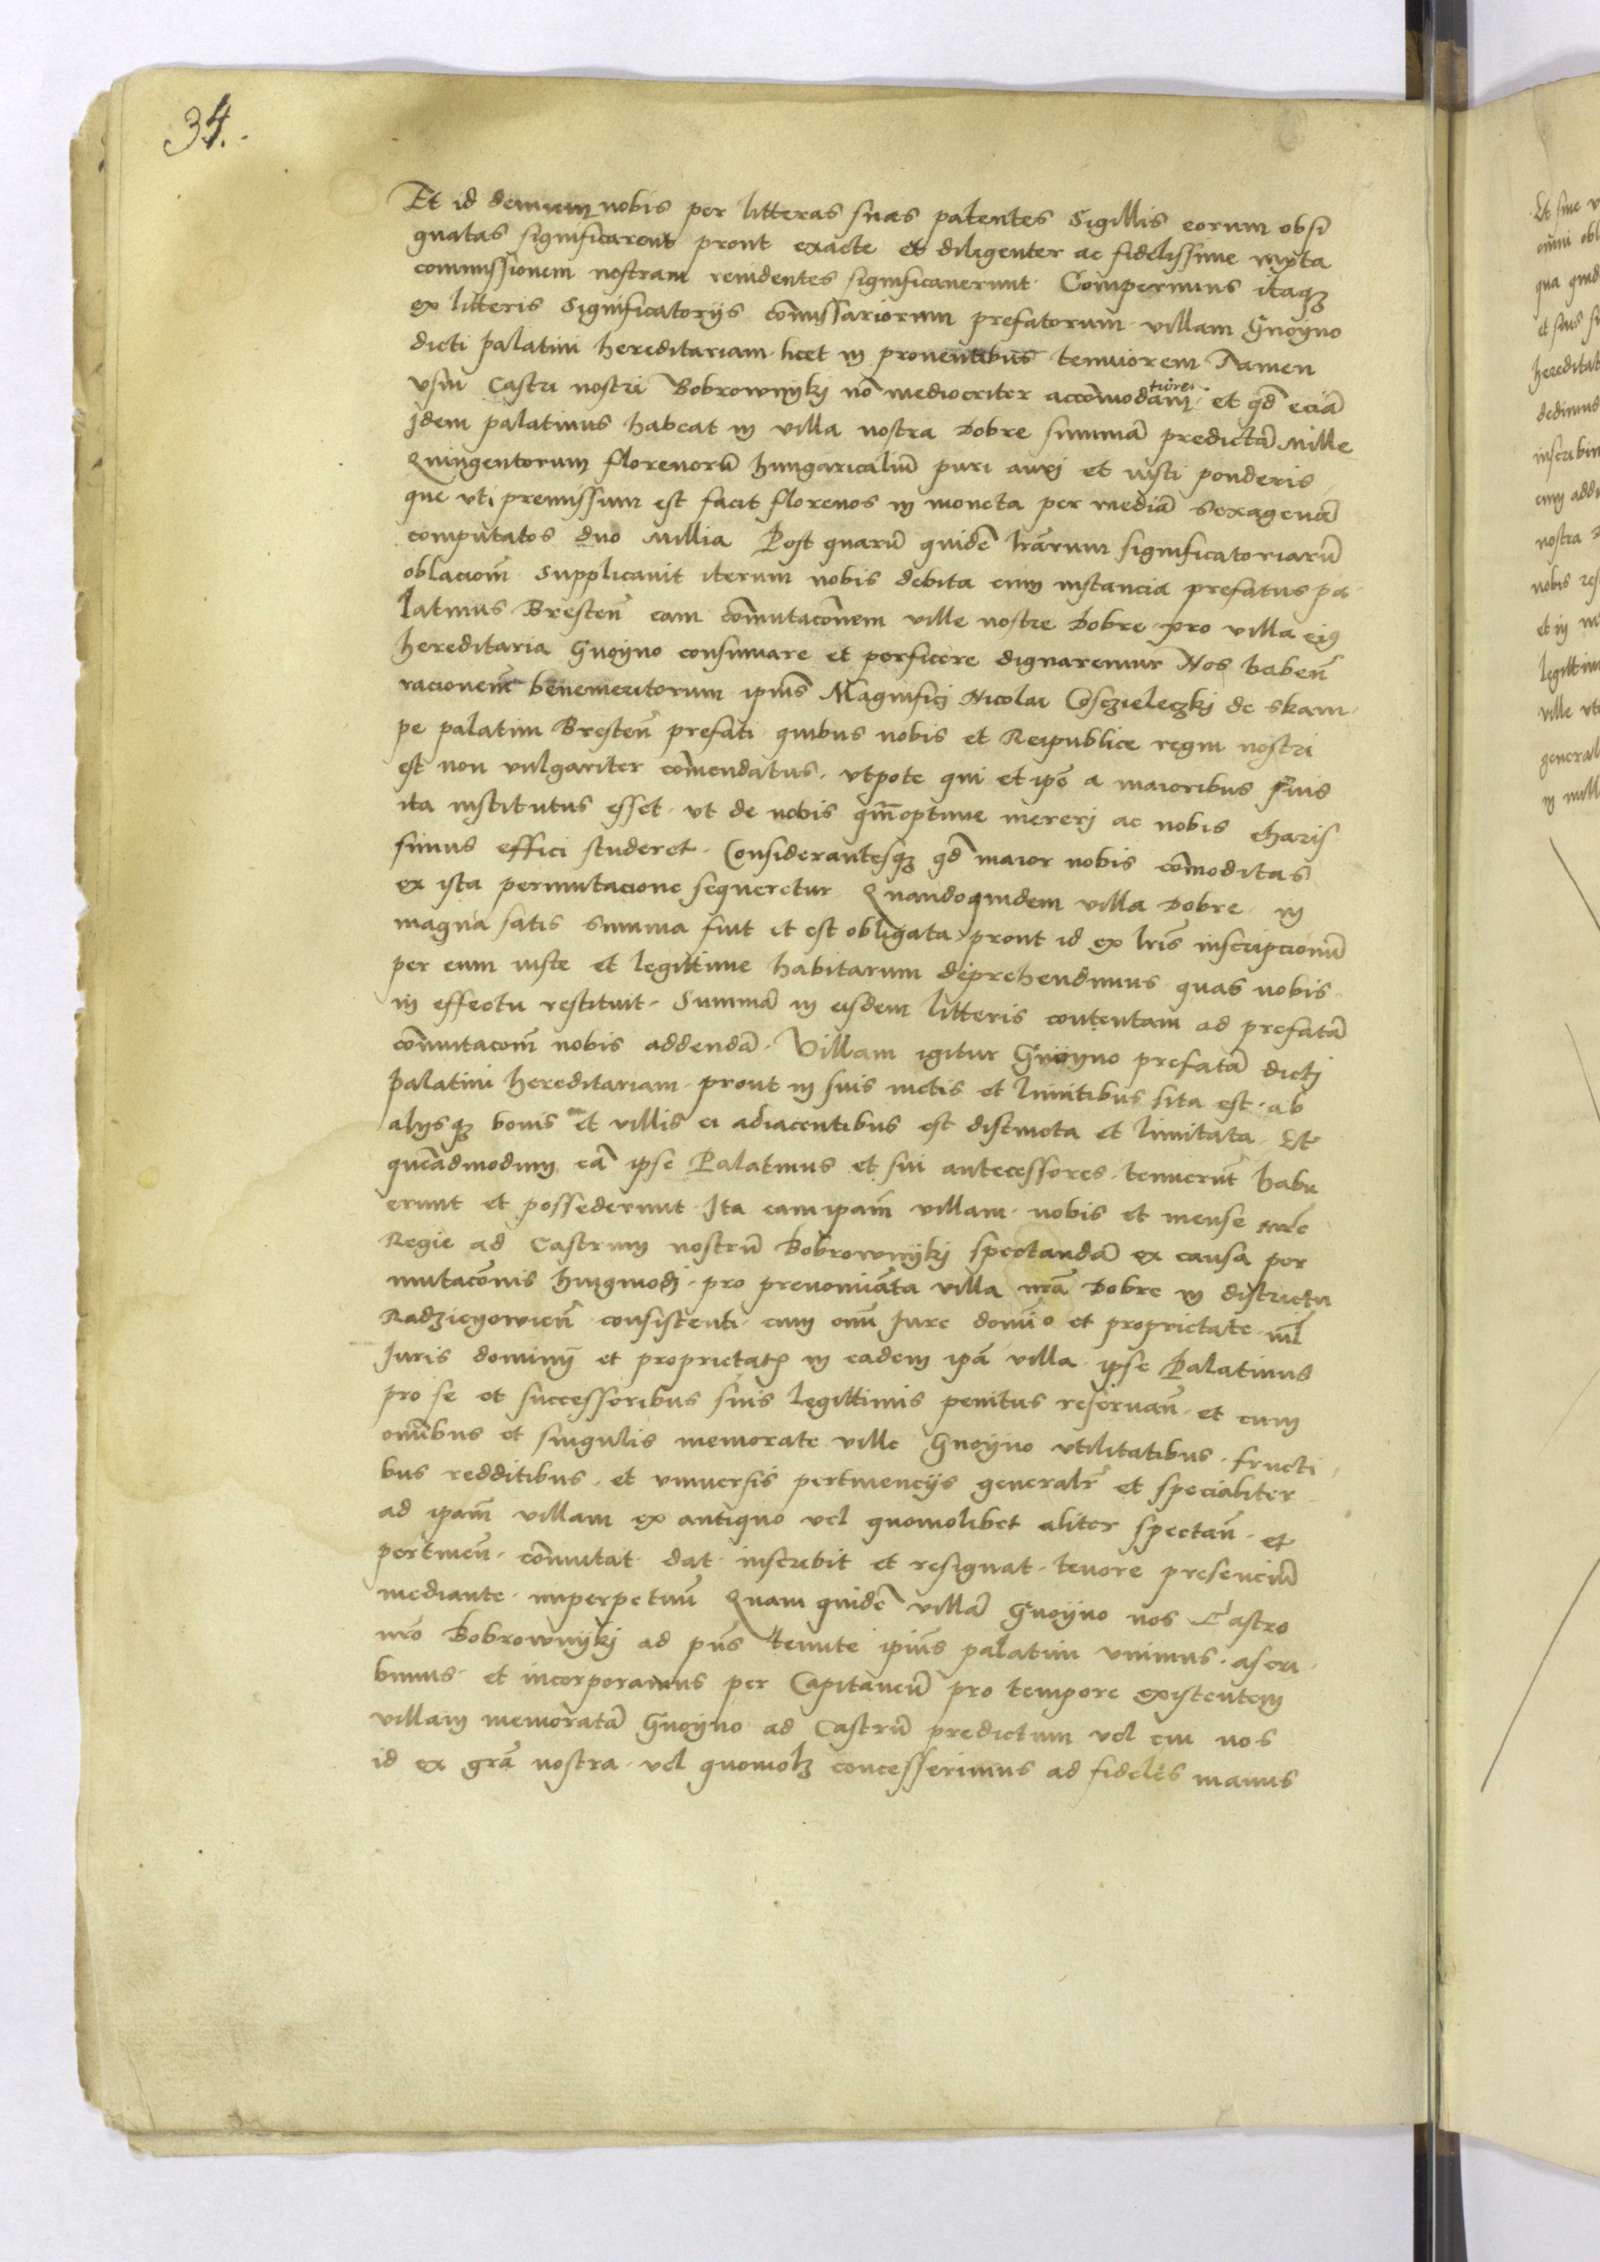 34.
Et id demum nobis per litteras suas patentes Sigillis eorum obsi
gnatas significarent prout exacte et diligenter ac fidelissime iuxta
commissionem nostram renidentes significauerunt Comperimus itaqꝫ
ex litteris Significatorijs com̃issariorum prefatorum villam Gnoyno
dicti palatini hereditariam licet in prouentibus tenuiorem Tamen
vsui Castri nostri Bobrownyky nõ mediocriter accõmodatiorem et qđ eciã
Jdem palatinus habeat in villa nostra Dobre summã predictã Mille
Quingentorum florenorũ hungaricaliũ puri aurj et iusti ponderis
que vti premissum est facit florenos in moneta per mediã sexagenã
computatos duo Millia Post quarũ quidẽ lrãrum significatoriarũ
oblaciom̃ Supplicauit iterum nobis debita cum instancia prefatus pa
latinus Bresteñ eam com̃utacõnem ville nostre Dobre pro villa eiꝰ
hereditaria Gnoyno consumare et perficere dignaremur Nos habeñ
racionem̃ benemeritorum ipius̃ Magnificj Nicolai Cosczieleczkj de skam
pe palatini Bresteñ prefati quibus nobis et Reipublice regni nostri
est non vulgariter com̃endatus. vtpote qui et ip̃e a maioribus suis
ita institutus esset. vt de nobis qm̃optime mererj ac nobis charis
simus effici studeret. Considerantesqꝫ qđ maior nobis com̃oditas
ex ista permutacione sequeretur Quandoquidem villa Dobre in
magna satis Summa fuit et est obligata prout id ex lrĩs inscripcionũ
per eum iuste et legittime habitarum deprehendimus quas nobis
in effectu restituit. Summã in eisdem litteris contentam ad prefatã
com̃utacom̃ nobis addendã. Villam igitur Gnoyno prefatã dictj
palatini hereditariam. prout in suis metis et limitibus sita est. ab
alijsqꝫ bonis et villis ei adiacentibus est distincta et limitata. Et
quẽadmodum eã ipse Palatinus et sui antecessores. tenuerũt habu
erunt et possederunt Ita eam ipam̃ villam. nobis et mense nr̃e
Regie ad Castrum nostrũ Bobrownykj spectandã ex causa per
mutacõnis hmõj. pro prenominãta villa nrã Dobre in districtu
Radzieyowieñ consistenti. cum omĩ Jure dominĩo et proprietate nil̃
Juris dominij et proprietatꝭ in eadem ipã villa ipse Palatinus
pro se et successoribus suis legittimis penitus reseruañ. et cum
om̃ibus et singulis memorate ville Gnoyno vtilitatibus. fructi
bus redditibus. et vniuersis pertinencijs generalr̃ et specialiter
ad ipam̃ villam ex antiquo vel quomolibet aliter spectañ. et
pertineñ. com̃utat. dat. inscribit et resignat. tenore presenciũ
mediante. imperpetuũ Quam quidẽ villã Gnoyno nos Castro
nrõ Bobrownykj ad pñs tenute ipiũs palatini vnimus. ascri
bimus. et incorporamus per Capitaneũ pro tempore existentem
villam memoratã Gnoyno ad Castrũ predictum vel cui nos
id ex grã nostra. vel quomolꝫ concesserimus ad fideles manus